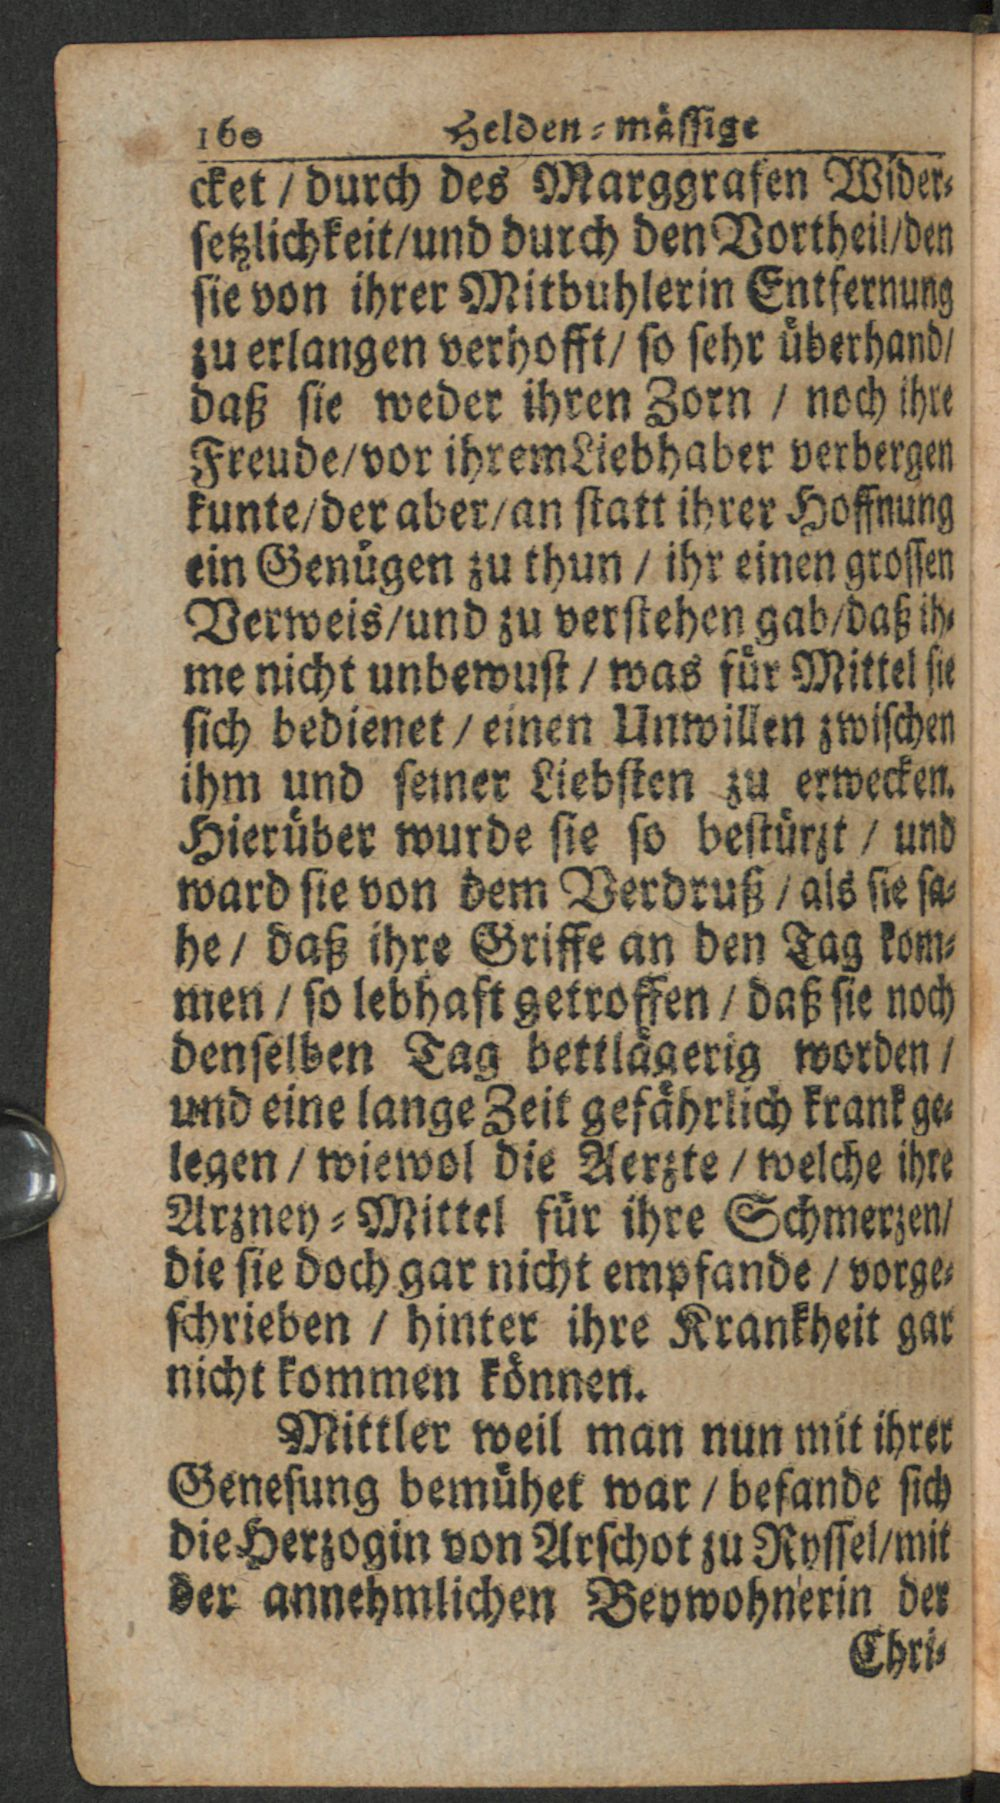 160 Helden-mässige
cket / durch des Marggrafen Wider-
setzlichkeit/und durch den Vortheil/den
sie von ihrer Mitbuhlerin Entfernung
zu erlangen verhofft/ so sehr überhand/
daß sie weder ihren Zorn / noch ihre
Freude/vor ihrem Liebhaber verbergen
kunte/der aber/an statt ihrer Hoffnung
ein Genügen zu thun / ihr einen grossen
Verweis/und zu verstehen gab/daß ih-
me nicht unbewust / was für Mittel sie
sich bedienet / einen Unwillen zwischen
ihm und seiner Liebsten zu erwecken.
Hierüber wurde sie so bestürzt / und
ward sie von dem Verdruß / als sie sa-
he / daß ihre Griffe an den Tag kom-
men / so lebhaft getroffen / daß sie noch
denselben Tag bettlägerig worden /
und eine lange Zeit gefährlich krank ge-
legen / wiewol die Aerzte / welche ihre
Arzney-Mittel für ihre Schmerzen/
die sie doch gar nicht empfande / vorge-
schrieben / hinter ihre Krankheit gar
nicht kommen können.
Mittler weil man nun mit ihrer
Genesung bemühet war / befande sich
die Herzogin von Arschot zu Ryssel/mit
der annehmlichen Beywohnerin der
Chri-